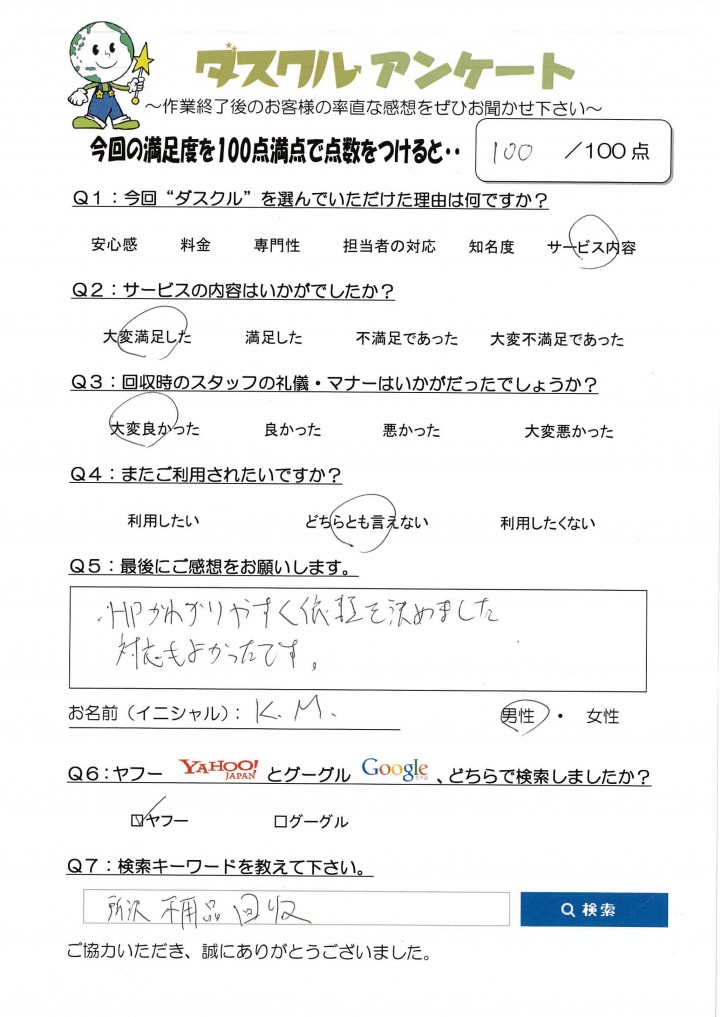 ダスクルアンケート
～作業終了後のお客様の率直な感想をぜひお聞かせ下さい～
今回の満足度を100点満点で点数をつけると‥ 100 ／100点
Q1：今回“ダスクル”を選んでいただけた理由は何ですか？
安心感 料金 専門性 担当者の対応 知名度 サービス内容
Q2：サービスの内容はいかがでしたか？
大変満足した 満足した 不満足であった 大変不満足であった
Q3：回収時のスタッフの礼儀・マナーはいかがだったでしょうか？
大変良かった 良かった 悪かった 大変悪かった
Q4：またご利用されたいですか？
利用したい どちらとも言えない 利用したくない
Q5：最後にご感想をお願いします。
HPがわかりやすく依頼を決めました
対応もよかったです。
お名前（イニシャル）：K.M. 男性 ・ 女性
Q6：ヤフー YAHOO! JAPAN とグーグル Google 、どちらで検索しましたか？
☑ヤフー □グーグル
Q7：検索キーワードを教えて下さい。
所沢 不用品回収 検索
ご協力いただき、誠にありがとうございました。